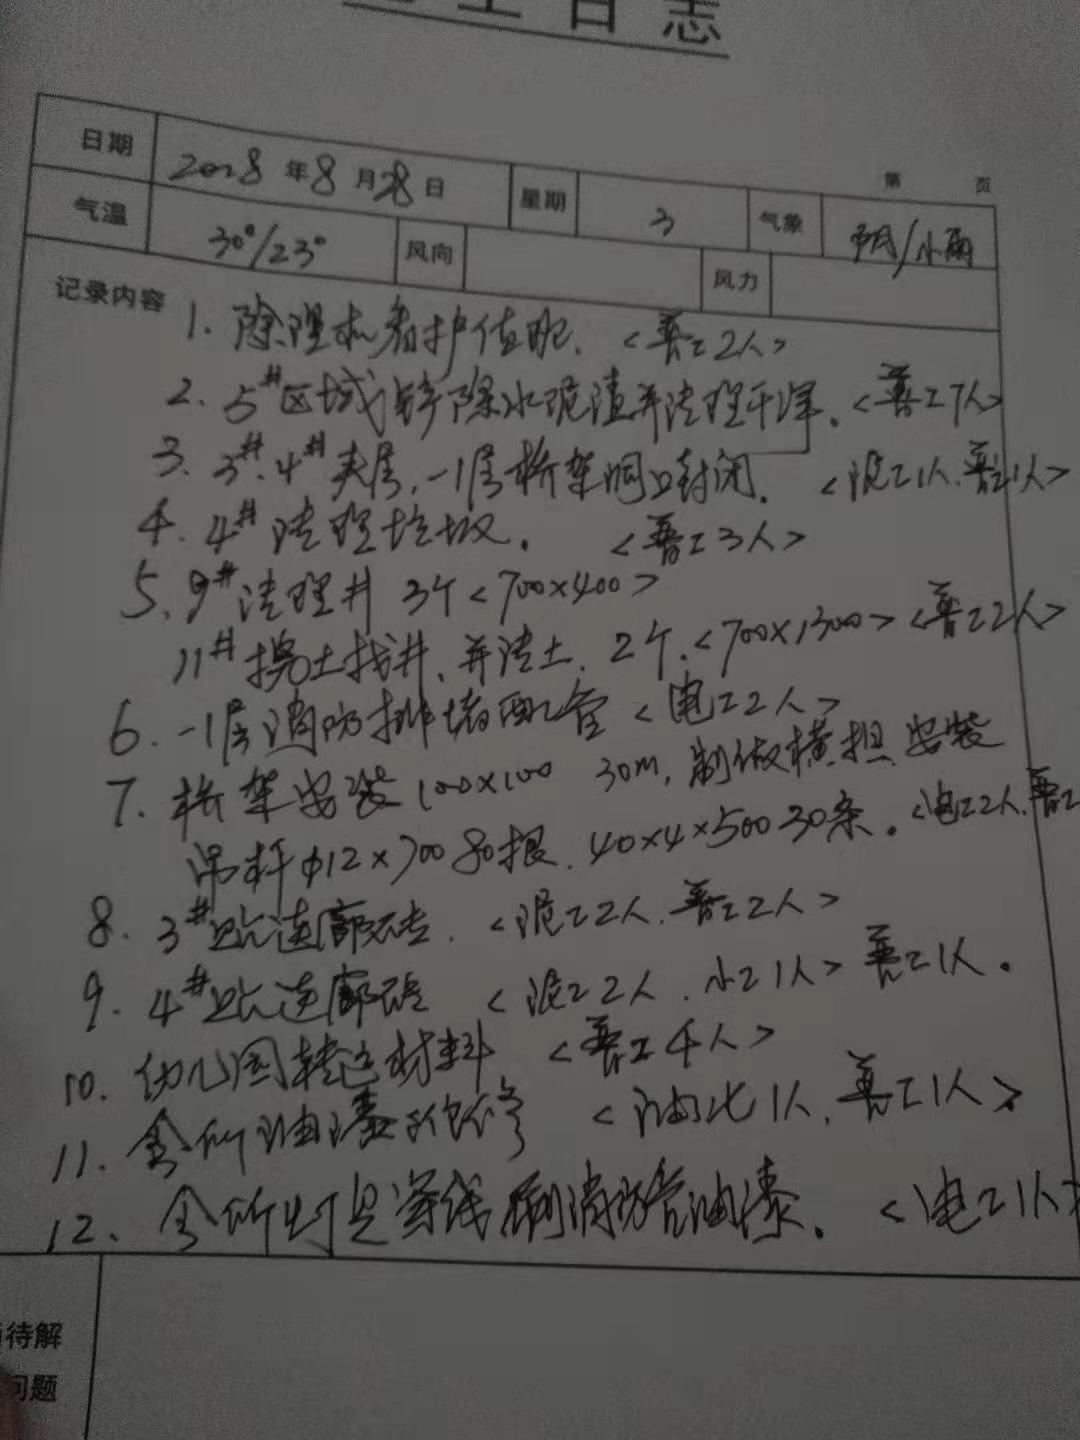 工日志
第 页
日期 2018年8月28日 星期 3 气象 阴/小雨
气温 30°/23° 风向 风力
记录内容
1. 除理机看护值班. <普工2人>
2. 5#区域 除水泥渣并清理干净. <普工7人>
3. 3#.4#夹层,-1层桥架洞口封闭. <泥工1人.普工1人>
4. 4#清理垃圾. <普工3人>
5. 9#清理井 3个<700×400>
11#挖土找井,并清土. 2个.<700×1300> <普工2人>
6. -1层消防排 配管 <电工2人>
7. 桥架安装100×100 30m,制做横担安装
吊杆φ12×700 80根. 40×4×500 30条. <电工2人.普工
8. 3#贴连廊砖. <泥工2人.普工2人>
9. 4#贴连廊砖 <泥工2人.小工1人> 普工1人.
10. 幼儿园转运材料 <普工4人>
11. 油漆 修 <油 1人,普工1人>
12. 灯 线 刷消防管油漆. <电工1人>
待解
问题